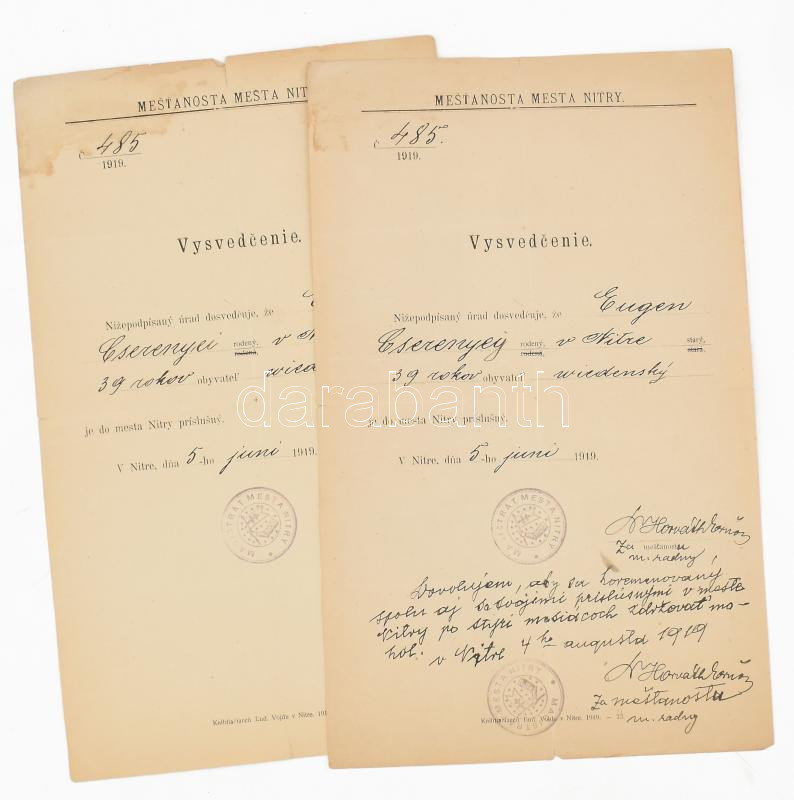 MEŠŤANOSTA MESTA NIT
č 485
1919.
Vysvedčenie.
Nižepodpísaný úrad dosvedčuje, že
Cserenyei rodený, rodená, v N
39 rokov obyvateľ wied
je do mesta Nitry príslušný.
V Nitre, dňa 5-ho juni 1919.
MAGISTRÁT MESTA NITRY
V Nitre, 191
MEŠŤANOSTA MESTA NITRY.
č 485.
1919.
Vysvedčenie.
Nižepodpísaný úrad dosvedčuje, že Eugen
Cserenyey rodený, rodená, v Nitre starý, stará,
39 rokov obyvateľ wiedenský
je do mesta Nitry príslušný.
V Nitre, dňa 5-ho juni 1919.
MAGISTRÁT MESTA NITRY
Dr Horváth
Za mešťanostu
m. radny
Dovoľujem, aby sa horemenovaný,
spolu aj so svojimi príslusnými v meste
Nitry po štyri mesiacoch zdržovať mo-
hol.
v Nitre 4 ho augusta 1919
MAGISTRÁT MESTA NITRY
Dr Horváth
Za mešťanostu
m. radny
Kníhtlačiareň Eud. Vojda v Nitre. 1919. — 73
darabanth